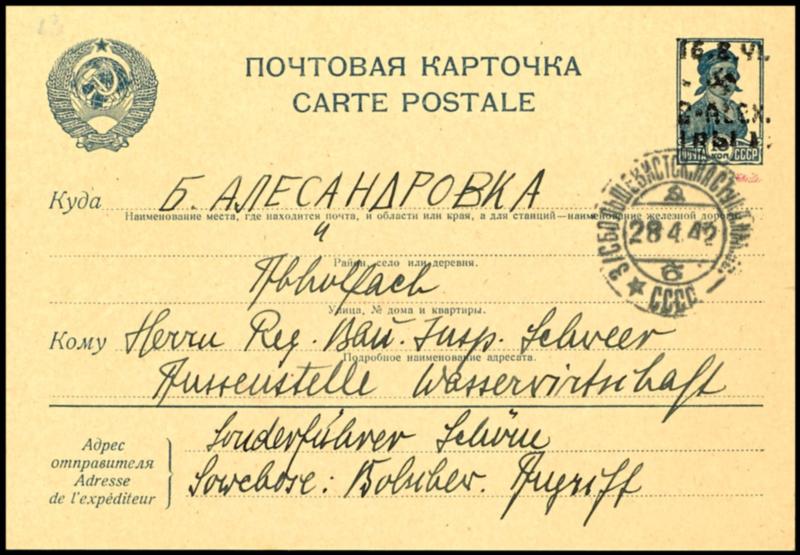 ПОЧТОВАЯ КАРТОЧКА
CARTE POSTALE
16.8.41.
B-ALEX.
ПОЧТА КОП СССР
Куда Б. АЛЕСАНДРОВКА
Наименование места, где находится почта, и области или края, а для станций—наименование железной дороги.
28 4 42
б
СССР
Район, село или деревня.
Abholfach
Улица, № дома и квартиры.
Кому Herrn Reg. Bau. Insp. Schweer
Подробное наименование адресата.
Aussenstelle Wasserwirtschaft
Адрес отправителя
Adresse de l'expéditeur
Sonderführer Schön
Sowchose: Bolschew. Angriff